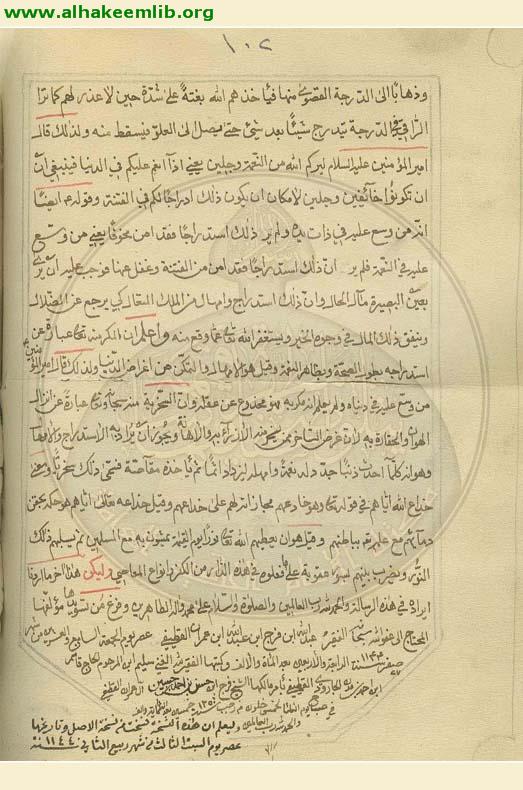 www.alhakeemlib.org
١٠٢
وذهابا الى الدرجة القصوى منها فيأخذهم الله بغتة على شدة حين لا عذر لهم كما ترا
الراقي في الدرجة يتدرج شيئا بعد شئ حتى يصل الى العلو فيسقط منه ولذلك قال
امير المؤمنين عليه السلام ليركم الله من النعمة وجلين يعني اذا انعم عليكم في الدنيا فينبغي ان
ان تكونوا خائفين وجلين لامكان ان يكون ذلك ادراجا لكم في الفتنة وقوله ع ايضا
انه من وسع عليه في ذات يده ولم ير ذلك استدراجا فقد امن مخوفا يعني من وسع
عليه في النعمة فلم ير ان ذلك استدراجا فقد امن من الفتنة وغفل عنها فوجب عليه ان يرى
بعين البصيرة مآل الحال وان ذلك استدراج وامهال من الملك المتعال كي يرجع عن الضلال
وينفق ذلك المال في وجوه الخير ويستغفر الله تعا عما وقع منه واعلم ان المكر منه تعا عبارة عن
استدراجه بطول الصحة وبظاهر النعمة وقيل هو الامهال والتمكن من اغراض الدنيا ولذلك قال امير المؤمنين
من وسع عليه في دنياه ولم يعلم انه مكر به فهو مخدوع عن عقله وان السخرية منه سبحانه وتعا عبارة عن انزال
الهوان والحقارة به لان غرض الساخر ممن يسخر منه الازراء به والاهانة ويجوز ان يراد به الاستدراج
وهو انه كلما احدث ذنبا جدد له نعمة وامهله ليزداد اثما ثم يأخذه مفاجئة فسمى ذلك سخرية ومعنى
خداع الله اياهم في قوله تعا وهو خادعهم مجازاته لهم على خداعهم وقيل خداعه تعالى اياهم هو حكمه بحقن
دمائهم مع علمه تعا بباطنهم وقيل هو ان يعطيهم الله تعا نورا يوم القيمة يمشون به مع المسلمين ثم يسلبهم ذلك
النور ويضرب بينهم بسور عقوبة على ما فعلوه في هذه الدار من الكفر وانواع المعاصي وليكن هذا آخر ما اردنا
ايراده في هذه الرسالة والحمد لله رب العالمين والصلوة والسلام على محمد وآله الطاهرين وفرغ من تسويدها مؤلفها
المحتاج الى عفو الله سبحانه الفقير عبد الله ابن فرج ابن عبد الله ابن عمران القطيفي عصر يوم الجمعة السابع والعشرون من شهر
صفر سنة ١١٤٤ الرابعة والاربعين بعد المائة والالف وكتبها الفقير لله الغني سليم ابن المرحوم الحاج قاسم
والحمد لله رب العالمين وليعلم ان هذه النسخة نسخت على نسخة الاصل وتاريخها
عصر يوم السبت الثالث من شهر ربيع الثاني سنة ١١٤٤